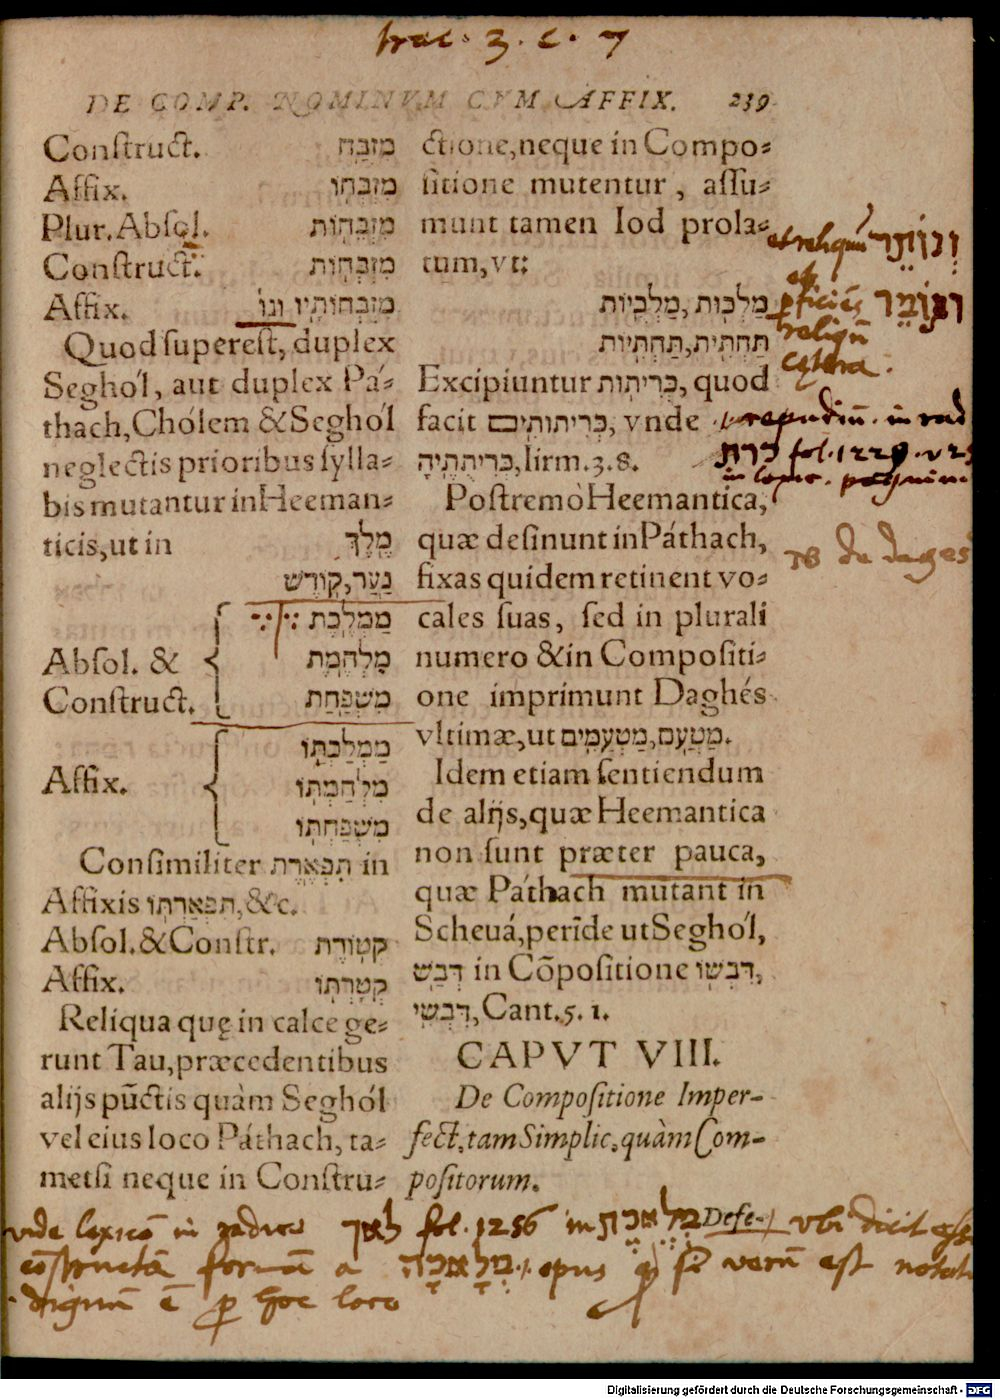 DE COMP. NOMINVM CVM AFFIX. 239
Construct. מִזְבַּח
Affix. מִזְבְּחוֹ
Plur. Absol. מִזְבְּחוֹת
Construct. מִזְבְּחוֹת
Affix. מִזְבְּחוֹתָיו וגו׳
Quod superest, duplex
Seghól, aut duplex Pá-
thach, Chólem & Seghól
neglectis prioribus sylla-
bis mutantur in Heeman-
ticis, ut in מֶלֶךְ
נַעַר, קוֹדֶשׁ
Absol. &
Construct.
מַמְלֶכֶת
מִלְחֶמֶת
מִשְׁפַּחַת
Affix.
מַמְלַכְתּוֹ
מִלְחַמְתּוֹ
מִשְׁפַּחְתּוֹ
Consimiliter תִּפְאֶרֶת in
Affixis תִּפְאַרְתּוֹ, &c.
Absol. & Constr. קְטוֹרֶת
Affix. קְטָרְתּוֹ
Reliqua quę in calce ge-
runt Tau, præcedentibus
alijs pūctis quàm Seghól
vel eius loco Páthach, ta-
metsi neque in Constru-
ctione, neque in Compo-
sitione mutentur, assu-
munt tamen Iod prola-
tum, vt:
מַלְכוּת, מַלְכֻיּוֹת
תַּחְתִּית, תַּחְתִּיּוֹת
Excipiuntur כְּרִיתוּת, quod
facit כְּרִיתוּתִים, vnde
כְּרִיתֻתֶיהָ, Iirm. 3. 8.
Postremò Heemantica,
quæ desinunt in Páthach,
fixas quidem retinent vo-
cales suas, sed in plurali
numero & in Compositi-
one imprimunt Daghés
vltimæ, ut מַטְעַם, מַטְעַמִּים.
Idem etiam sentiendum
de alijs, quæ Heemantica
non sunt præter pauca,
quæ Páthach mutant in
Scheuá, perīde ut Seghól,
דְּבַשׁ in Cōpositione דִּבְשׁוֹ,
דִּבְשִׁי, Cant. 5. 1.
CAPVT VIII.
De Compositione Imper-
fect, tam Simplic, quàm Com-
positorum.
et reliquū וְנוֹתַר
reliqū
cętera.
repudiū. in rad
כרת fol. 1228.
de dages
vide lexicō in radice לאך fol. 1256 in מְלֶאכֶת Defe. vbi dicit esse
cōstructā formā a מְלָאכָה opus verū est
dignū ē p hoc loco
Digitalisierung gefördert durch die Deutsche Forschungsgemeinschaft - DFG